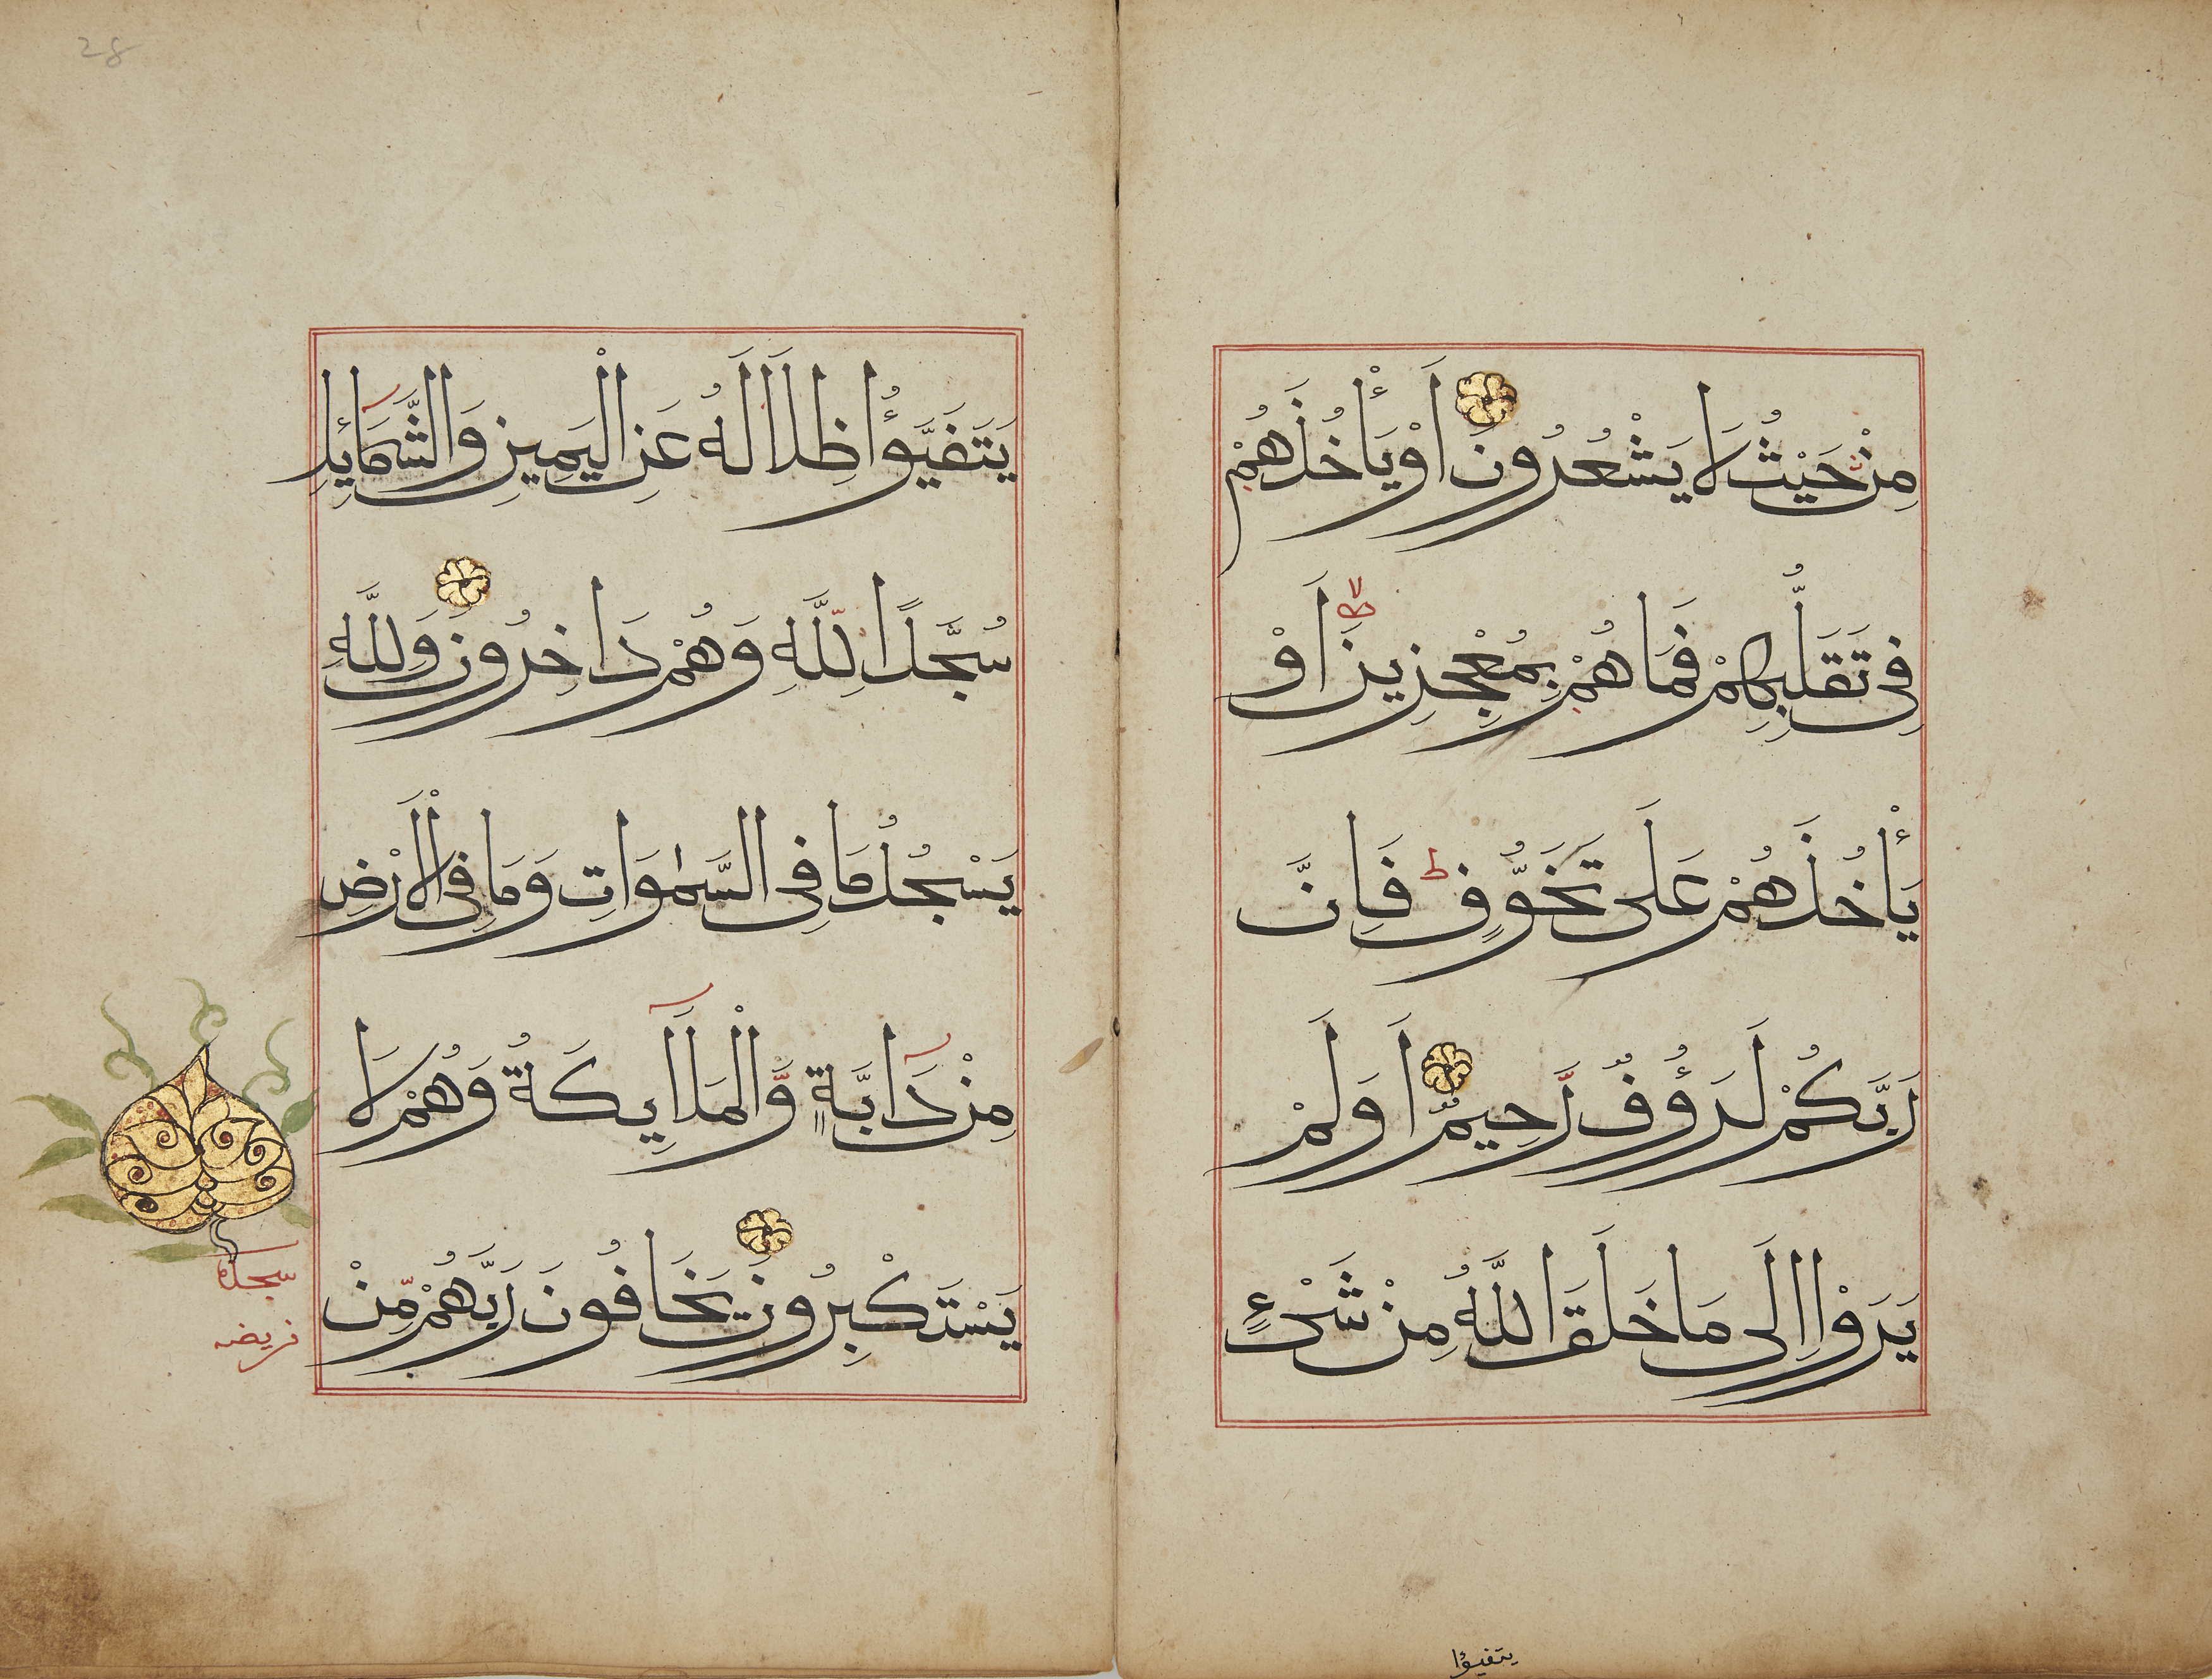 مِنْ حَيْثُ لَا يَشْعُرُونَ اَوْ يَأْخُذَهُمْ
فِى تَقَلُّبِهِمْ فَمَا هُمْ بِمُعْجِزِينَ اَوْ
لا
يَأْخُذَهُمْ عَلَى تَخَوُّفٍ ط فَاِنَّ
رَبَّكُمْ لَرَؤُفٌ رَّحِيمٌ اَوَلَمْ
يَرَوْا اِلَى مَا خَلَقَ اللَّهُ مِنْ شَىْءٍ
يتفيؤا
28
يَتَفَيَّؤُا ظِلَالَهُ عَنِ الْيَمِينِ وَالشَّمَائِلِ
سُجَّدًا لِّلَّهِ وَهُمْ دَاخِرُونَ وَلِلَّهِ
يَسْجُدُ مَا فِى السَّمٰوَاتِ وَمَا فِى الْاَرْضِ
مِنْ دَابَّةٍ وَّالْمَلَاَئِكَةُ وَهُمْ لَا
يَسْتَكْبِرُونَ يَخَافُونَ رَبَّهُمْ مِّنْ
سجدة
فريضه